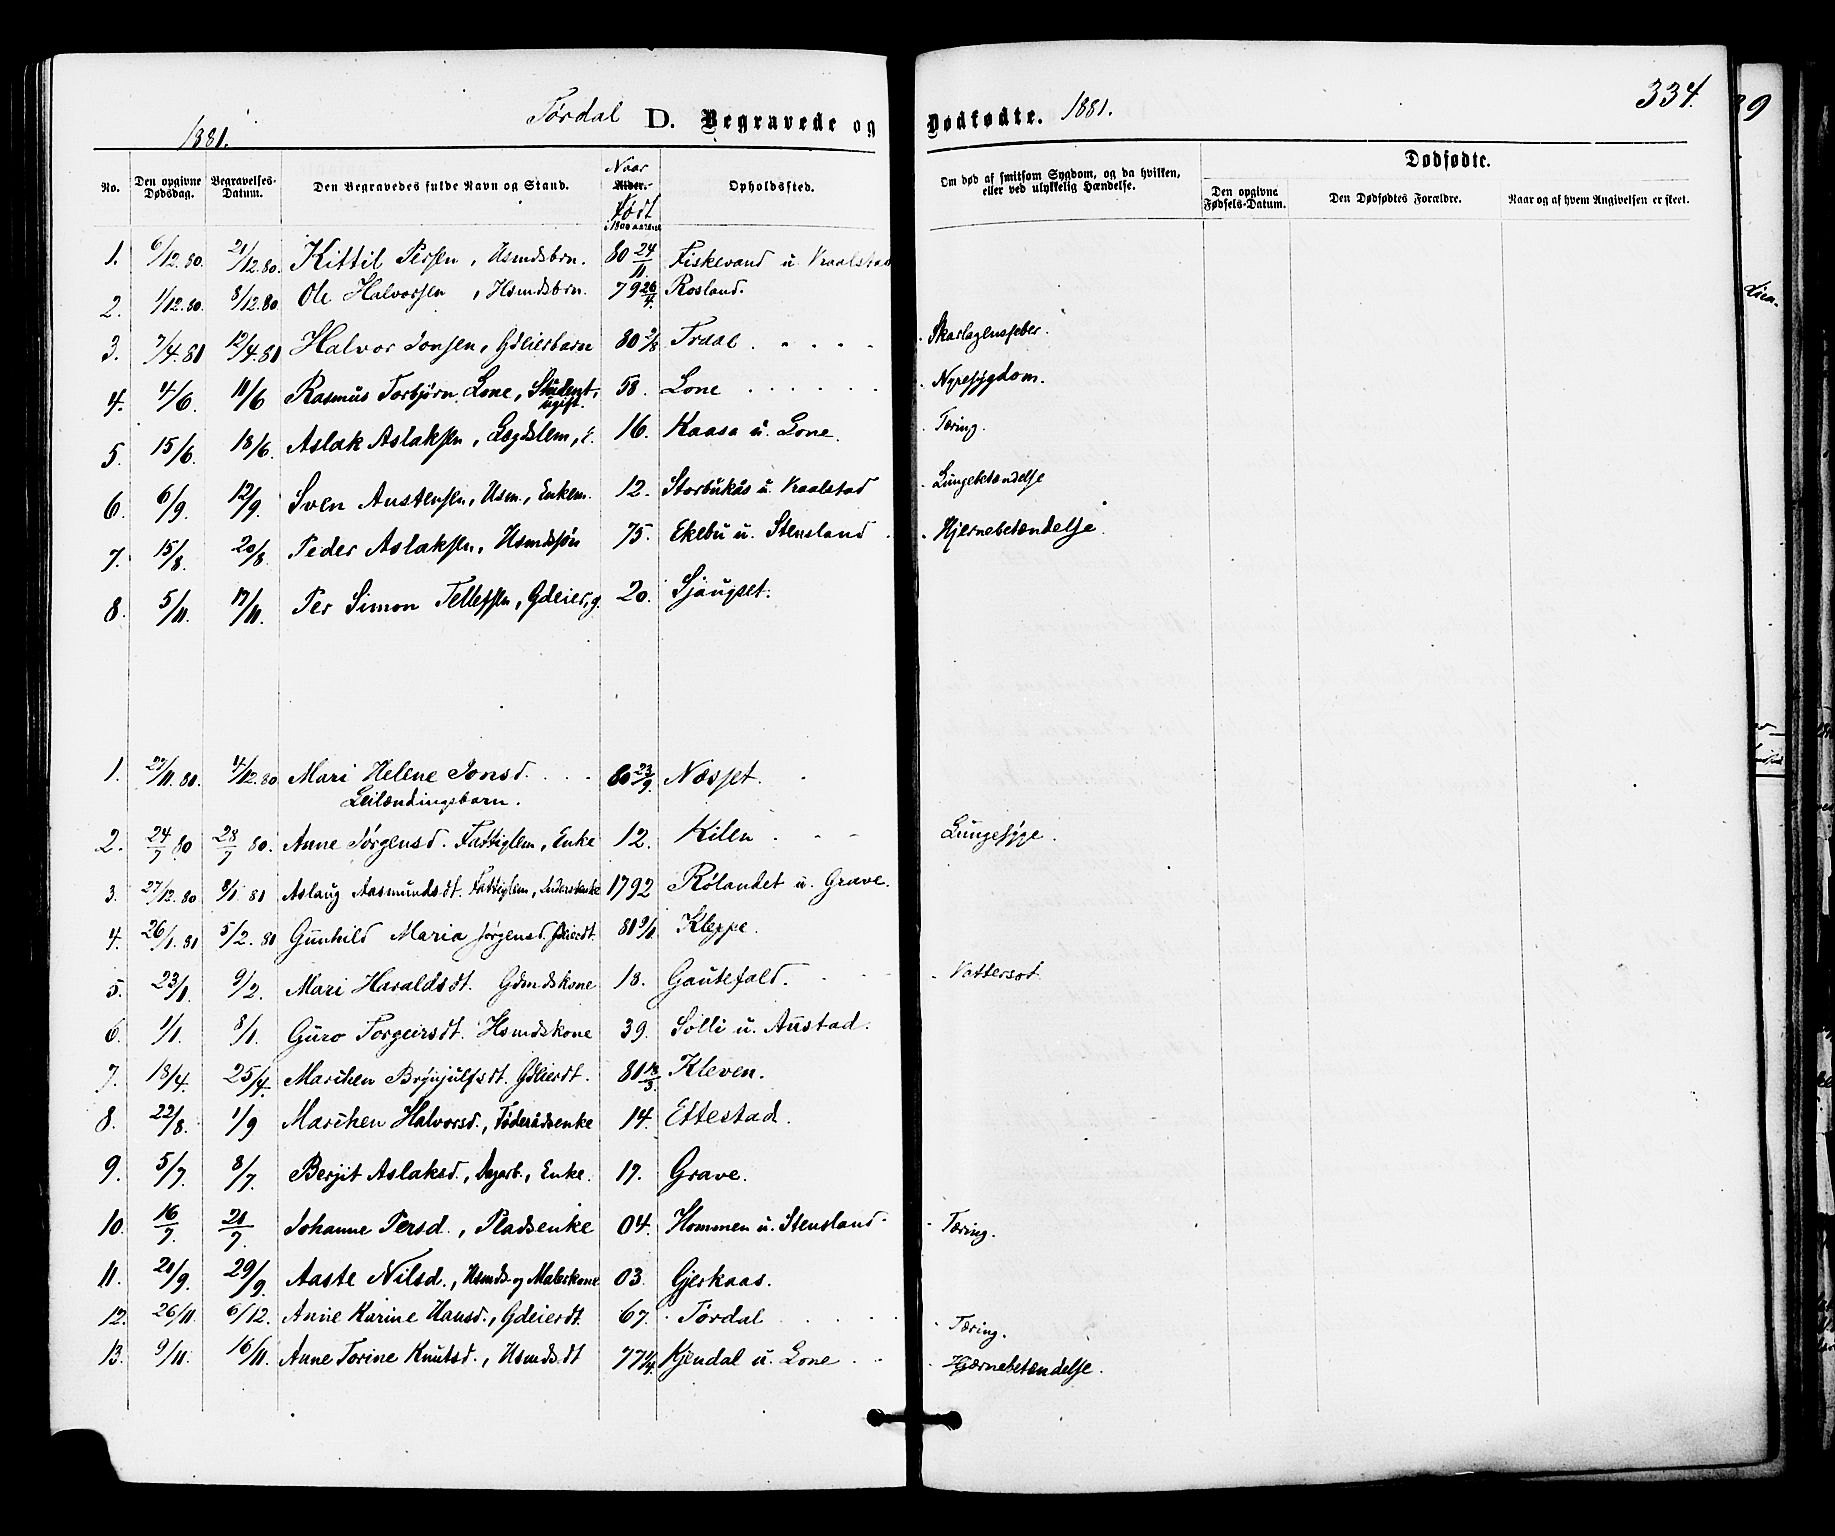 334.
Tørdal D. Begravede og Dødfødte. 1881.
1881.
No. | Den opgivne Dødsdag. | Begravelses-Datum. | Den Begravedes fulde Navn og Stand. | Naar Alder. Født i 1800 aarene | Opholdssted. | Om død af smitsom Sygdom, og da hvilken, eller ved ulykkelig Hændelse. | Dødfødte. | Den opgivne Fødsels-Datum. | Den Dødfødtes Forældre. | Naar og af hvem Angivelsen er skeet.
1. 6/12.80. 21/12.80. Kittil Persen, Husmdsbrn. 80 24/11. Fiskevand u Kraalstad
2. 1/12.80. 8/12.80 Ole Halvorsen, Hsmdsbrn. 79 26/4. Rosland.
3. 7/4.81 12/4.81 Halvor Jonsen, Gdeierbarn 80 2/8 Traae . Skarlagensfeber.
4. 4/6. 11/6 Rasmus Torbjørn Lone, Student, ugift. 58. Lone . Nyresygdom.
5. 15/6. 18/6. Aslak Aslaksen, Lægdslem, E. 16. Kaasa u. Lone. Tæring.
6. 6/9. 12/9. Sven Austensen, Hsm., Enkem. 12. Storbukås u. Kraalstad Lungebetændelse
7. 15/8. 20/8. Peder Aslaksen, Hsmdsøn 75. Ekebu u. Stensland . Hjernebetændelse.
8. 5/11. 17/11. Per Simon Tellefsen, Gdeier, g. 20. Sjaugset.
1. 27/11.80. 4/12.80 Mari Helene Jonsd. 80 23/9. Næsset.
Leilændingsbarn.
2. 24/7 80 28/7 80. Anne Jørgensd. Fattiglem, Enke 12. Kilen Lungesyge.
3. 27/12.80 8/1 81 Aslaug Aasmundsdt. Fattiglem, 1792 Rölandet u. Grave.
4. 26/1.81 5/2.80 Gunhild Maria Jørgensd. Gdeierdt. 81 9/1 Kleppe.
5. 23/1. 9/2. Mari Haraldsdt. Gdmdskone 18. Gautefald. Vattersot.
6. 1/1. 8/1. Guro Torgeirsdt. Hsmdskone 39. Solli u. Austad.
7. 18/4. 25/4. Marichen Brynjulfsdt. Gdeierdt. 81 12/3. Kleven.
8. 22/8. 1/9 Marichen Halvorsd., Føderådsenke 14. Ettestad.
9. 5/7. 8/7. Berjit Aslaksd., Dagarb., Enke. 17. Grave.
10. 16/7. 21/7. Johanne Persd., Pladsenke 04. Hommen u. Stensland Tæring.
11. 21/9. 29/9. Aaste Nilsd., Hsmds og Malerkone 03. Gjerkaas.
12. 26/11. 6/12. Anne Karine Hansd., Gdeierdt. 67. Tørdal Tæring.
13. 9/11. 16/11. Anne Torine Knutsd., Hsmdsdt 77 1/4. Kjendal u. Lone Hjernebetændelse.